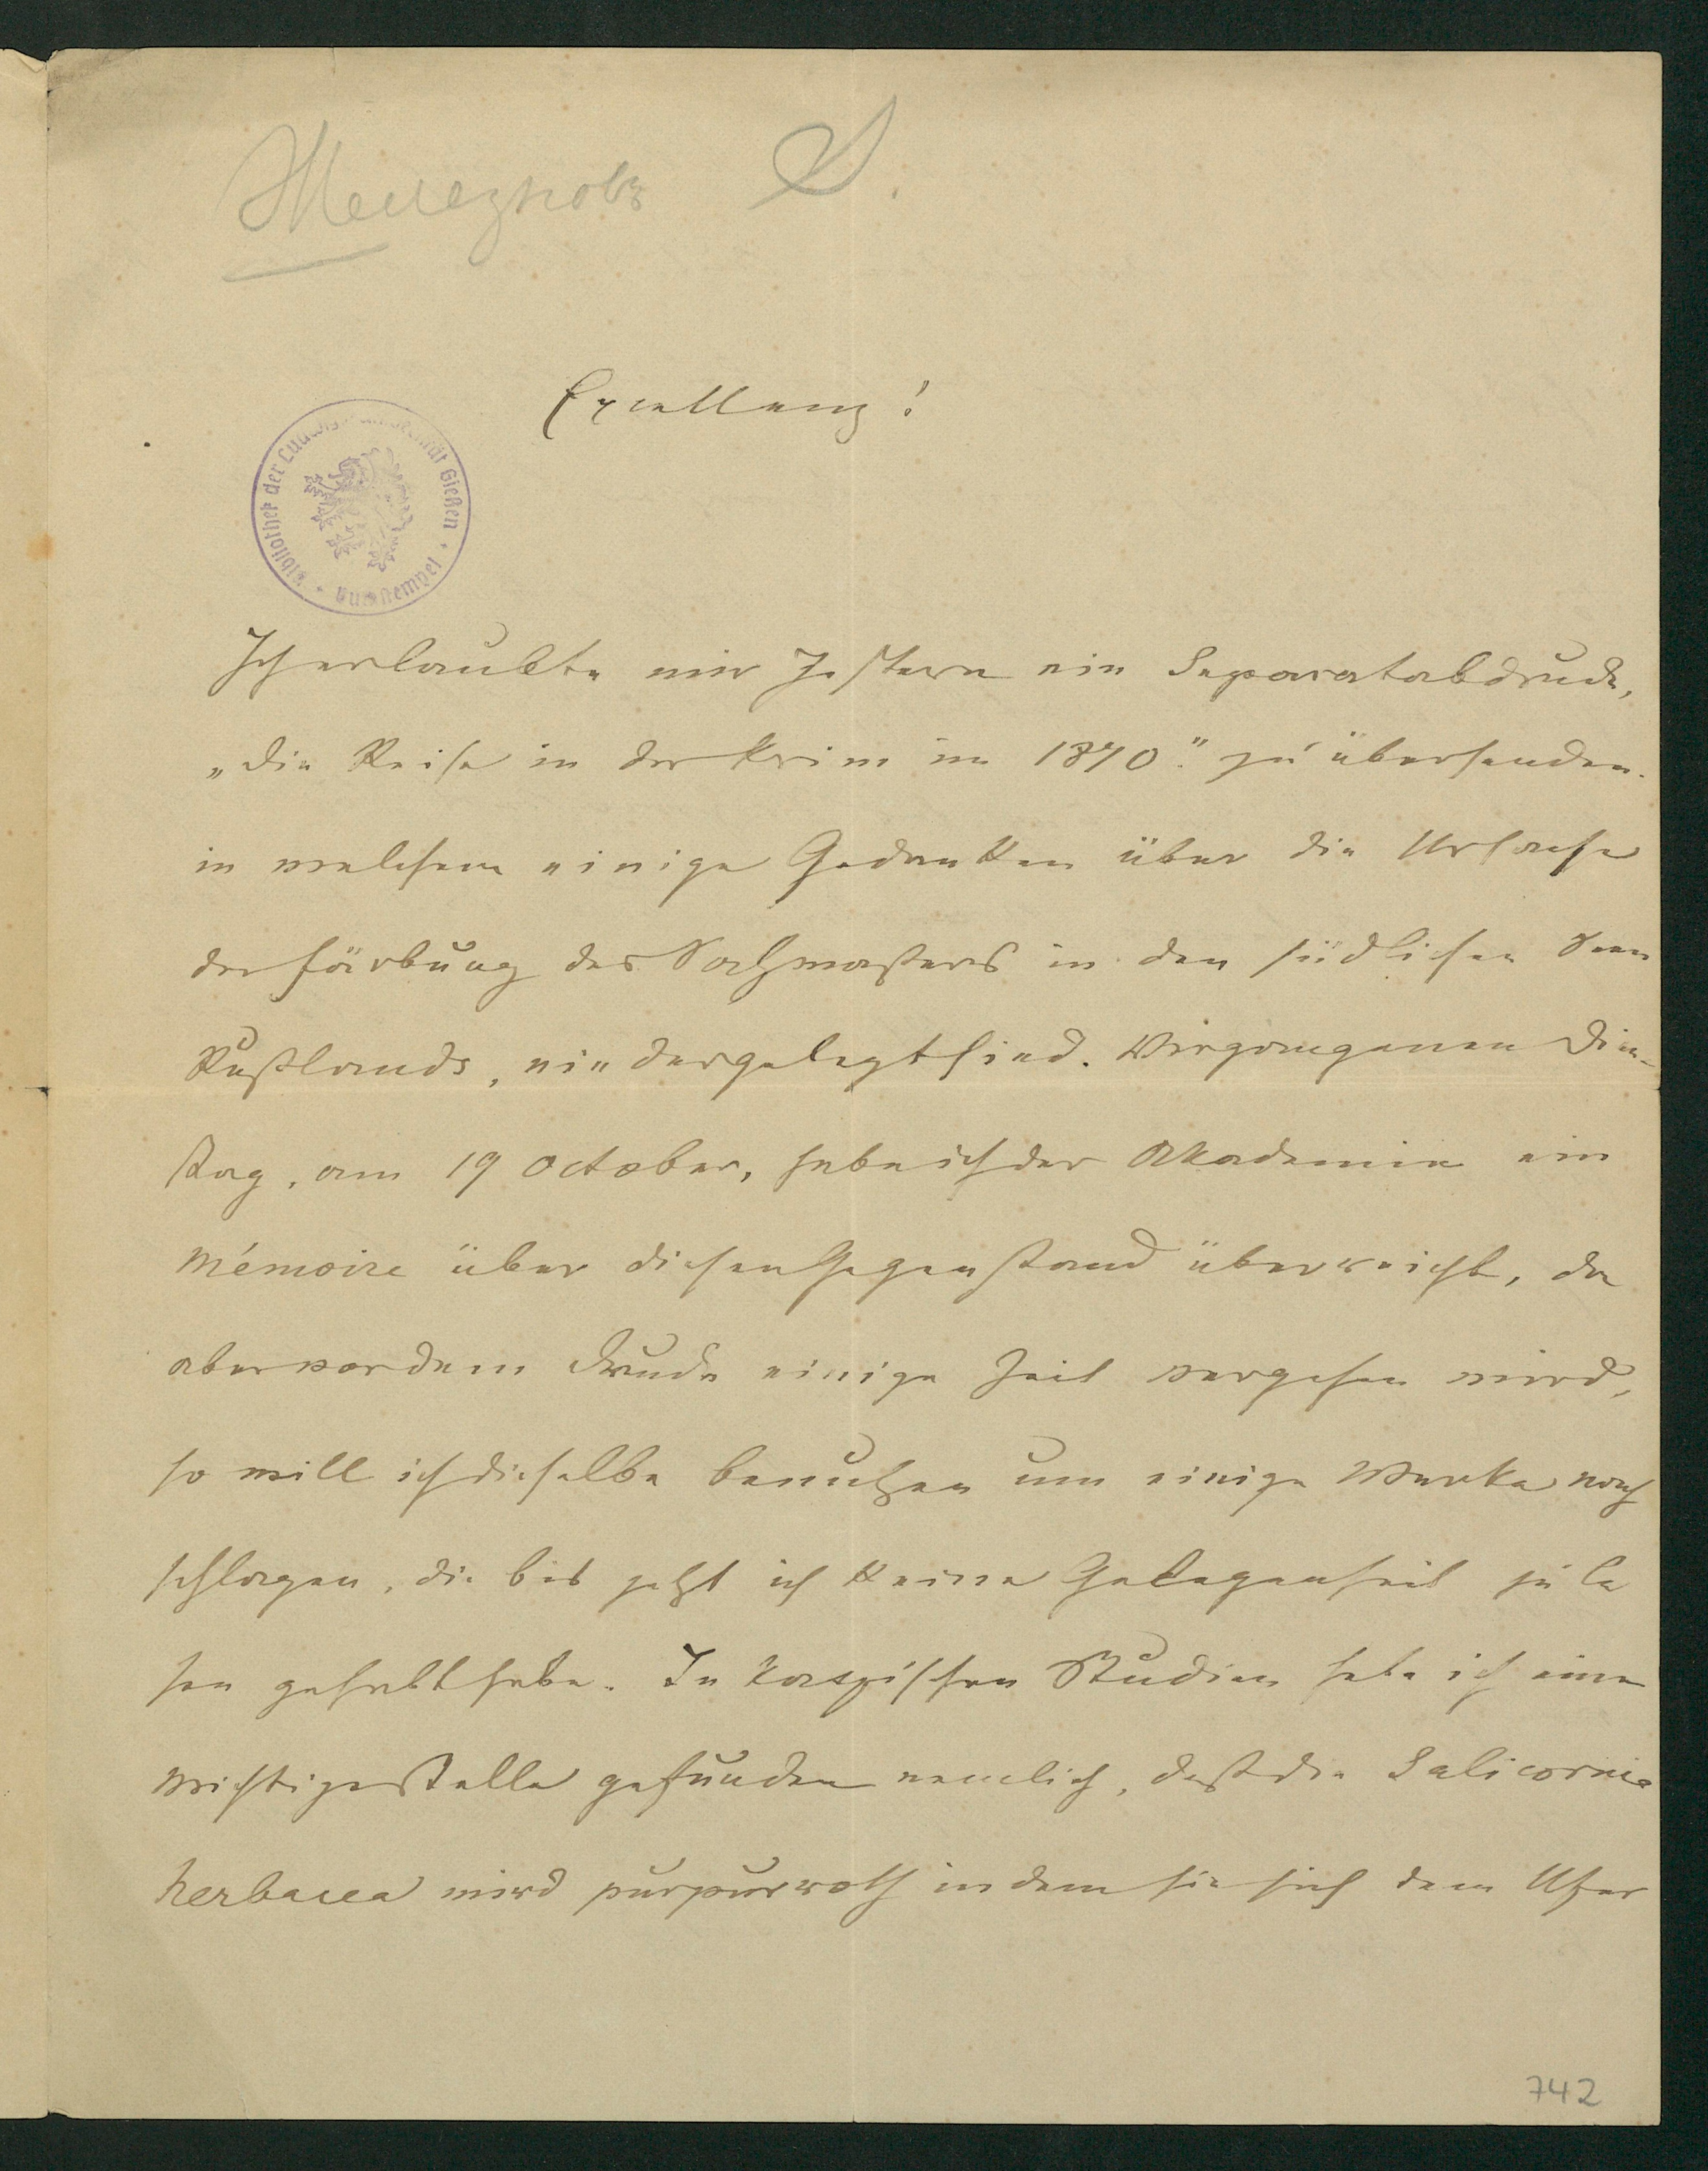 Железновъ
Excellenz!
Bibliothek der Ludwigs-Universität Gießen
Ich erlaubte mir gestern ein Separatabdruck,
„Die Reise in der Krim in 1870." zu übersenden.
in welchem einige Gedanken über die Ursache
der Färbung des Salzwaßers in den südlichen Seen
Rußlands, niedergelegt sind. Vergangenen Dien-
stag, am 19 October, habe ich der Akademie ein
Mémoire über diesen Gegenstand überreicht, da
aber vor dem Druck einige Zeit vergehen wird,
so will ich dieselbe benutzen um einige Werke nach
schlagen, die bis jetzt ich keine Gelegenheit zu le
sen gehabt habe. In Kaspischen Studien habe ich eine
wichtige Stelle gefunden nemlich, daß die Salicornia
herbacea wird purpurroth indem sie sich dem Ufer
742